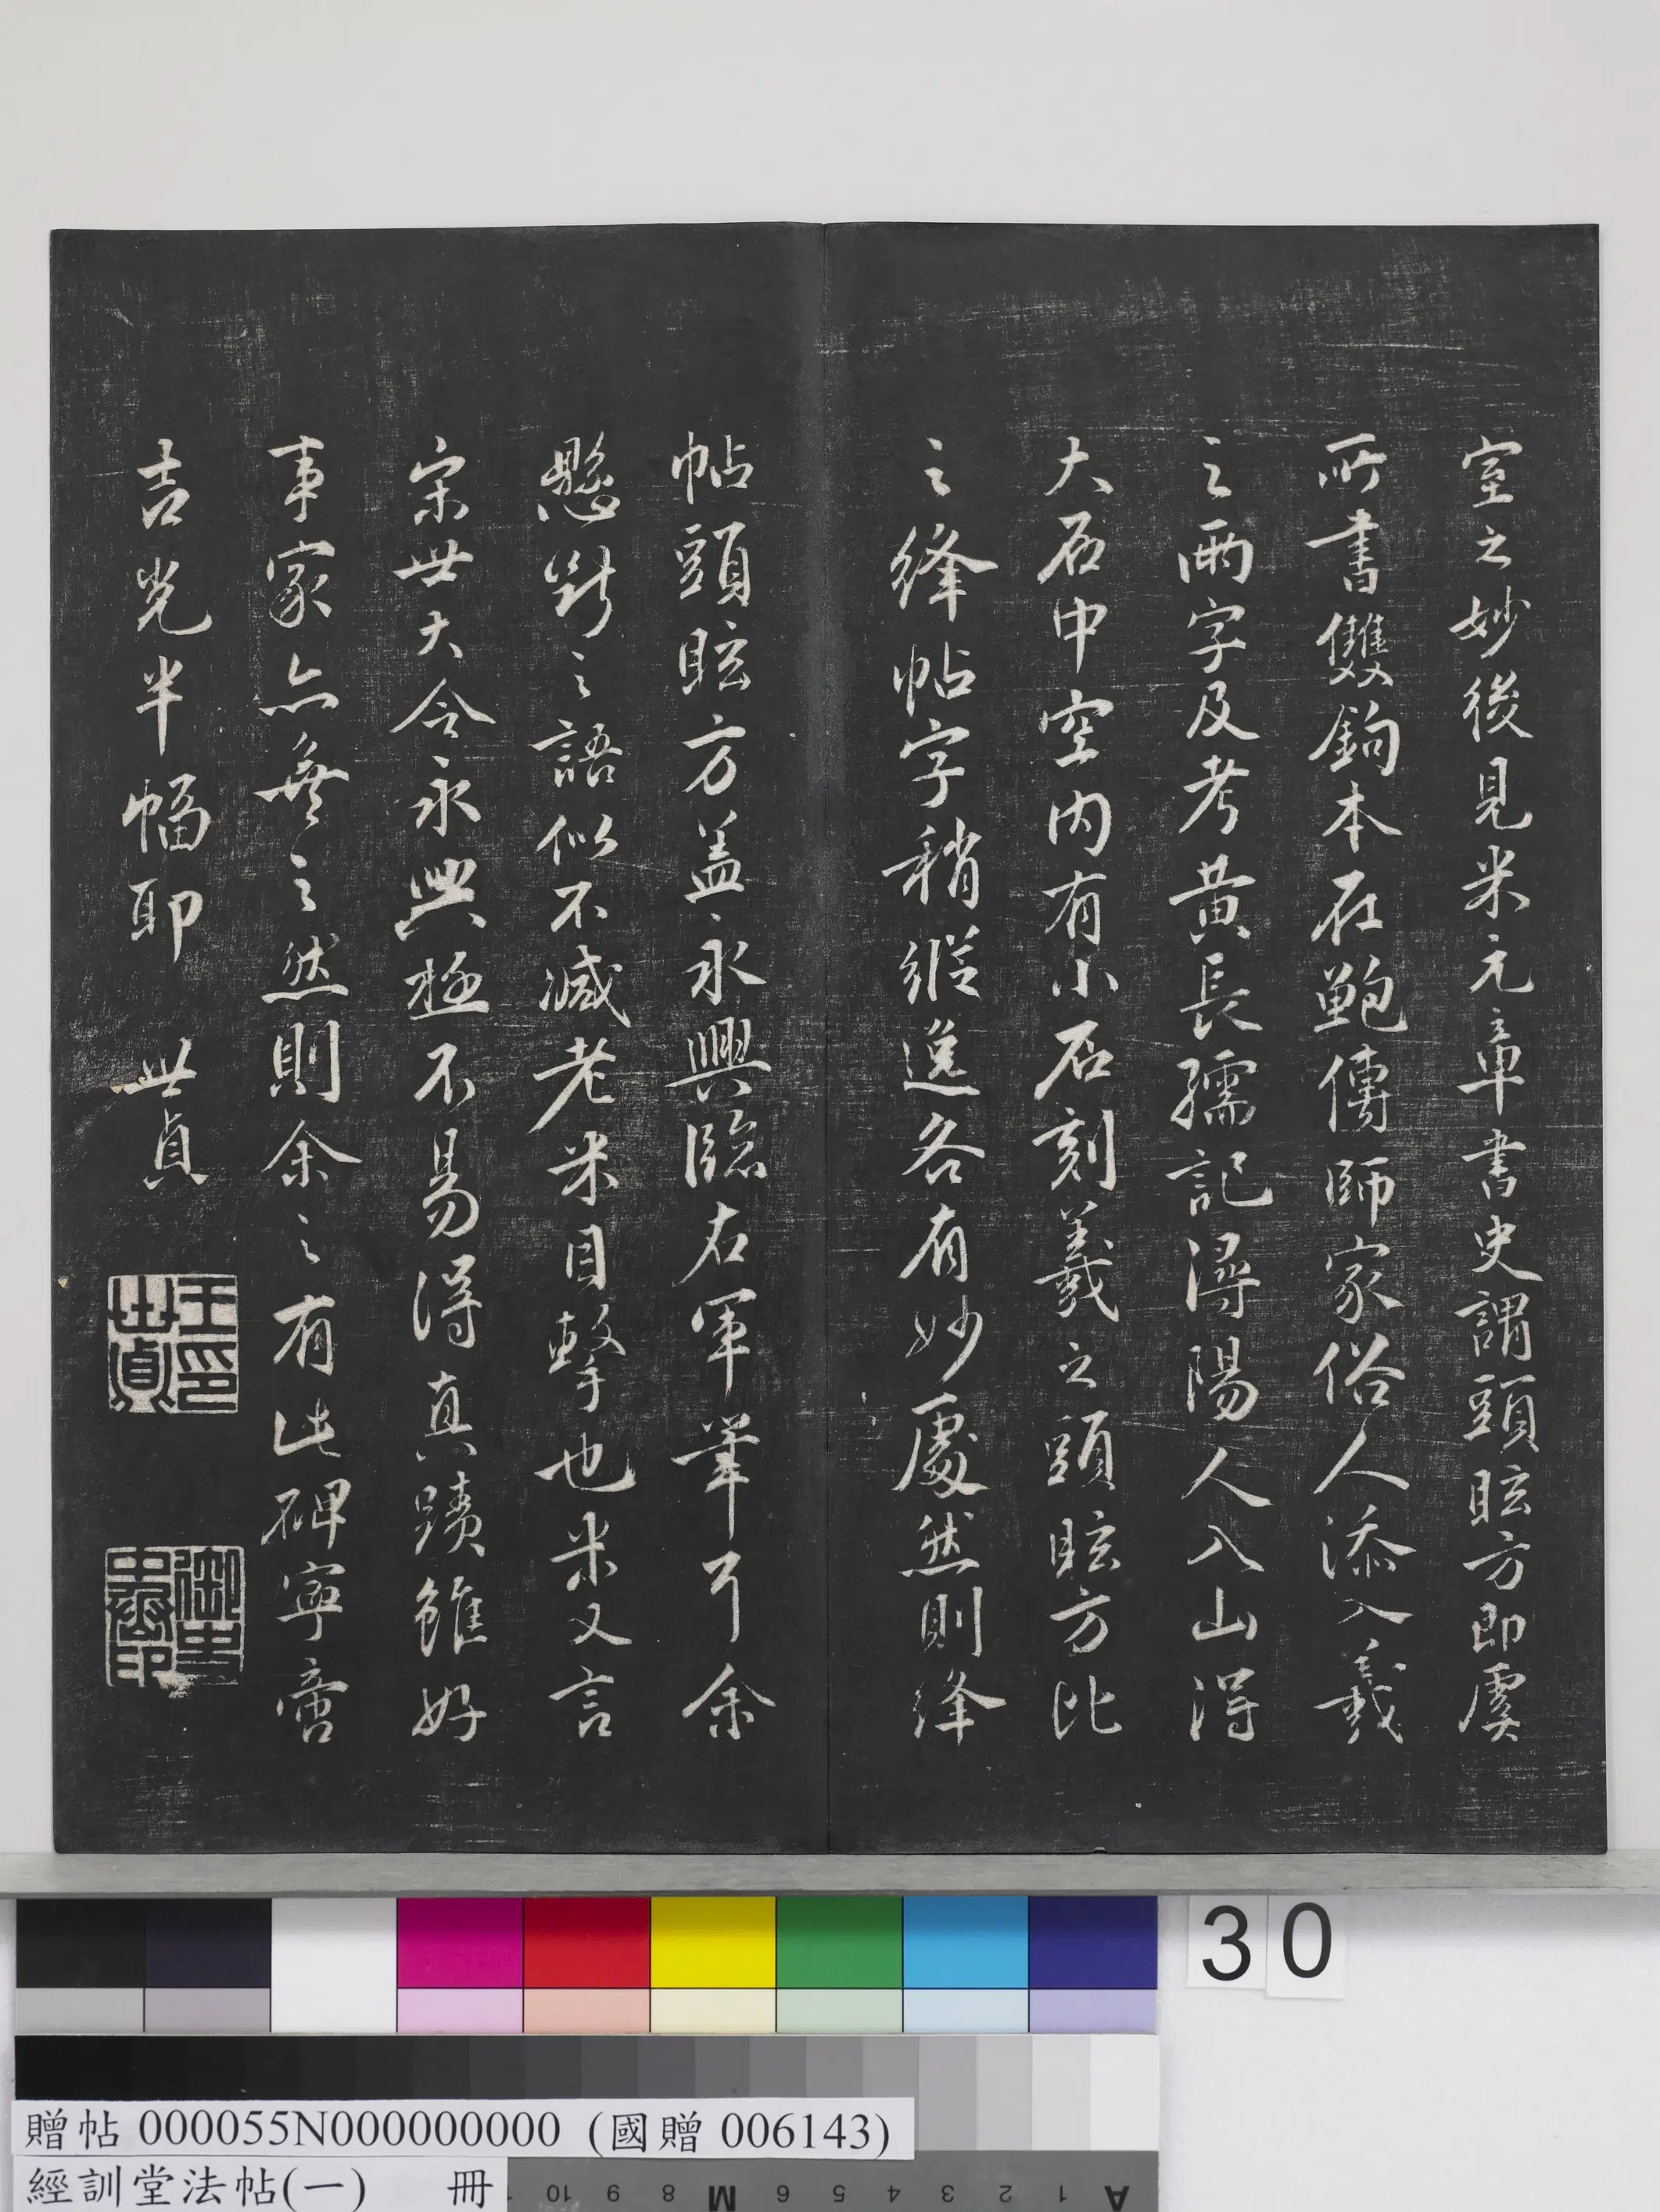 室之妙後見米元章書史謂頭眩方即虞
所書雙鉤本在鮑傳師家俗人添入羲
之兩字及考黃長孺記潯陽人入山得
大石中空內有小石刻羲之頭眩方比
之絳帖字稍縱逸各有妙處然則絳
帖頭眩方盖永興臨右軍筆耳余
懸斷之語似不減老米目擊也米又言
宋世大令永興極不易得真蹟雖好
事家亦無之然則余之有此碑寧啻
吉光半幅耶 世貞
王印世貞
御史中丞印
30
贈帖 000055N000000000 (國贈 006143)
經訓堂法帖(一) 冊
A 1 2 3 4 5 6 M 8 9 10